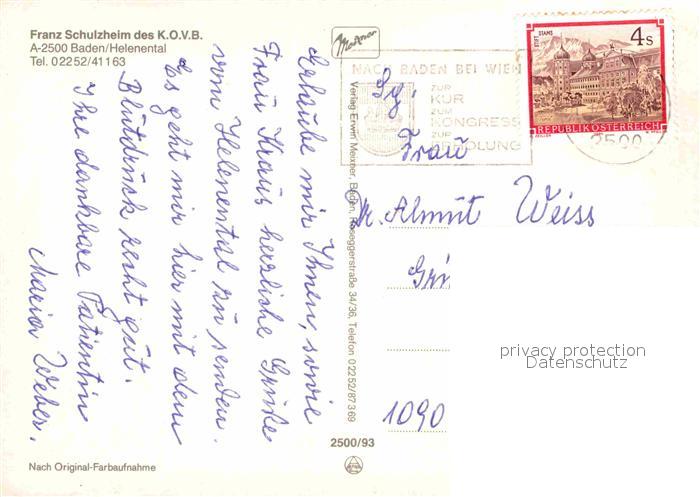 Franz Schulzheim des K.O.V.B.
A-2500 Baden/Helenental
Tel. 02252/41163
Erlaube mir Ihnen, sowie
Frau Kraus herzliche Grüße
vom Helenental zu senden.
Es geht mir hier mit dem
Blutdruck recht gut.
Ihre dankbare Patientin
Maria Weber.
Nach Original-Farbaufnahme
Meixner
Verlag Erwin Meixner, Baden, Roseggerstraße 34/36, Telefon 02252/87369
2500/93
NACH BADEN BEI WIEN
ZUR
KUR
ZUM
KONGRESS
ZUR
ERHOLUNG
STIFT STAMS
4 S
REPUBLIK ÖSTERREICH
2500
Frau
Dr. Almut Weiss
1090
privacy protection
Datenschutz